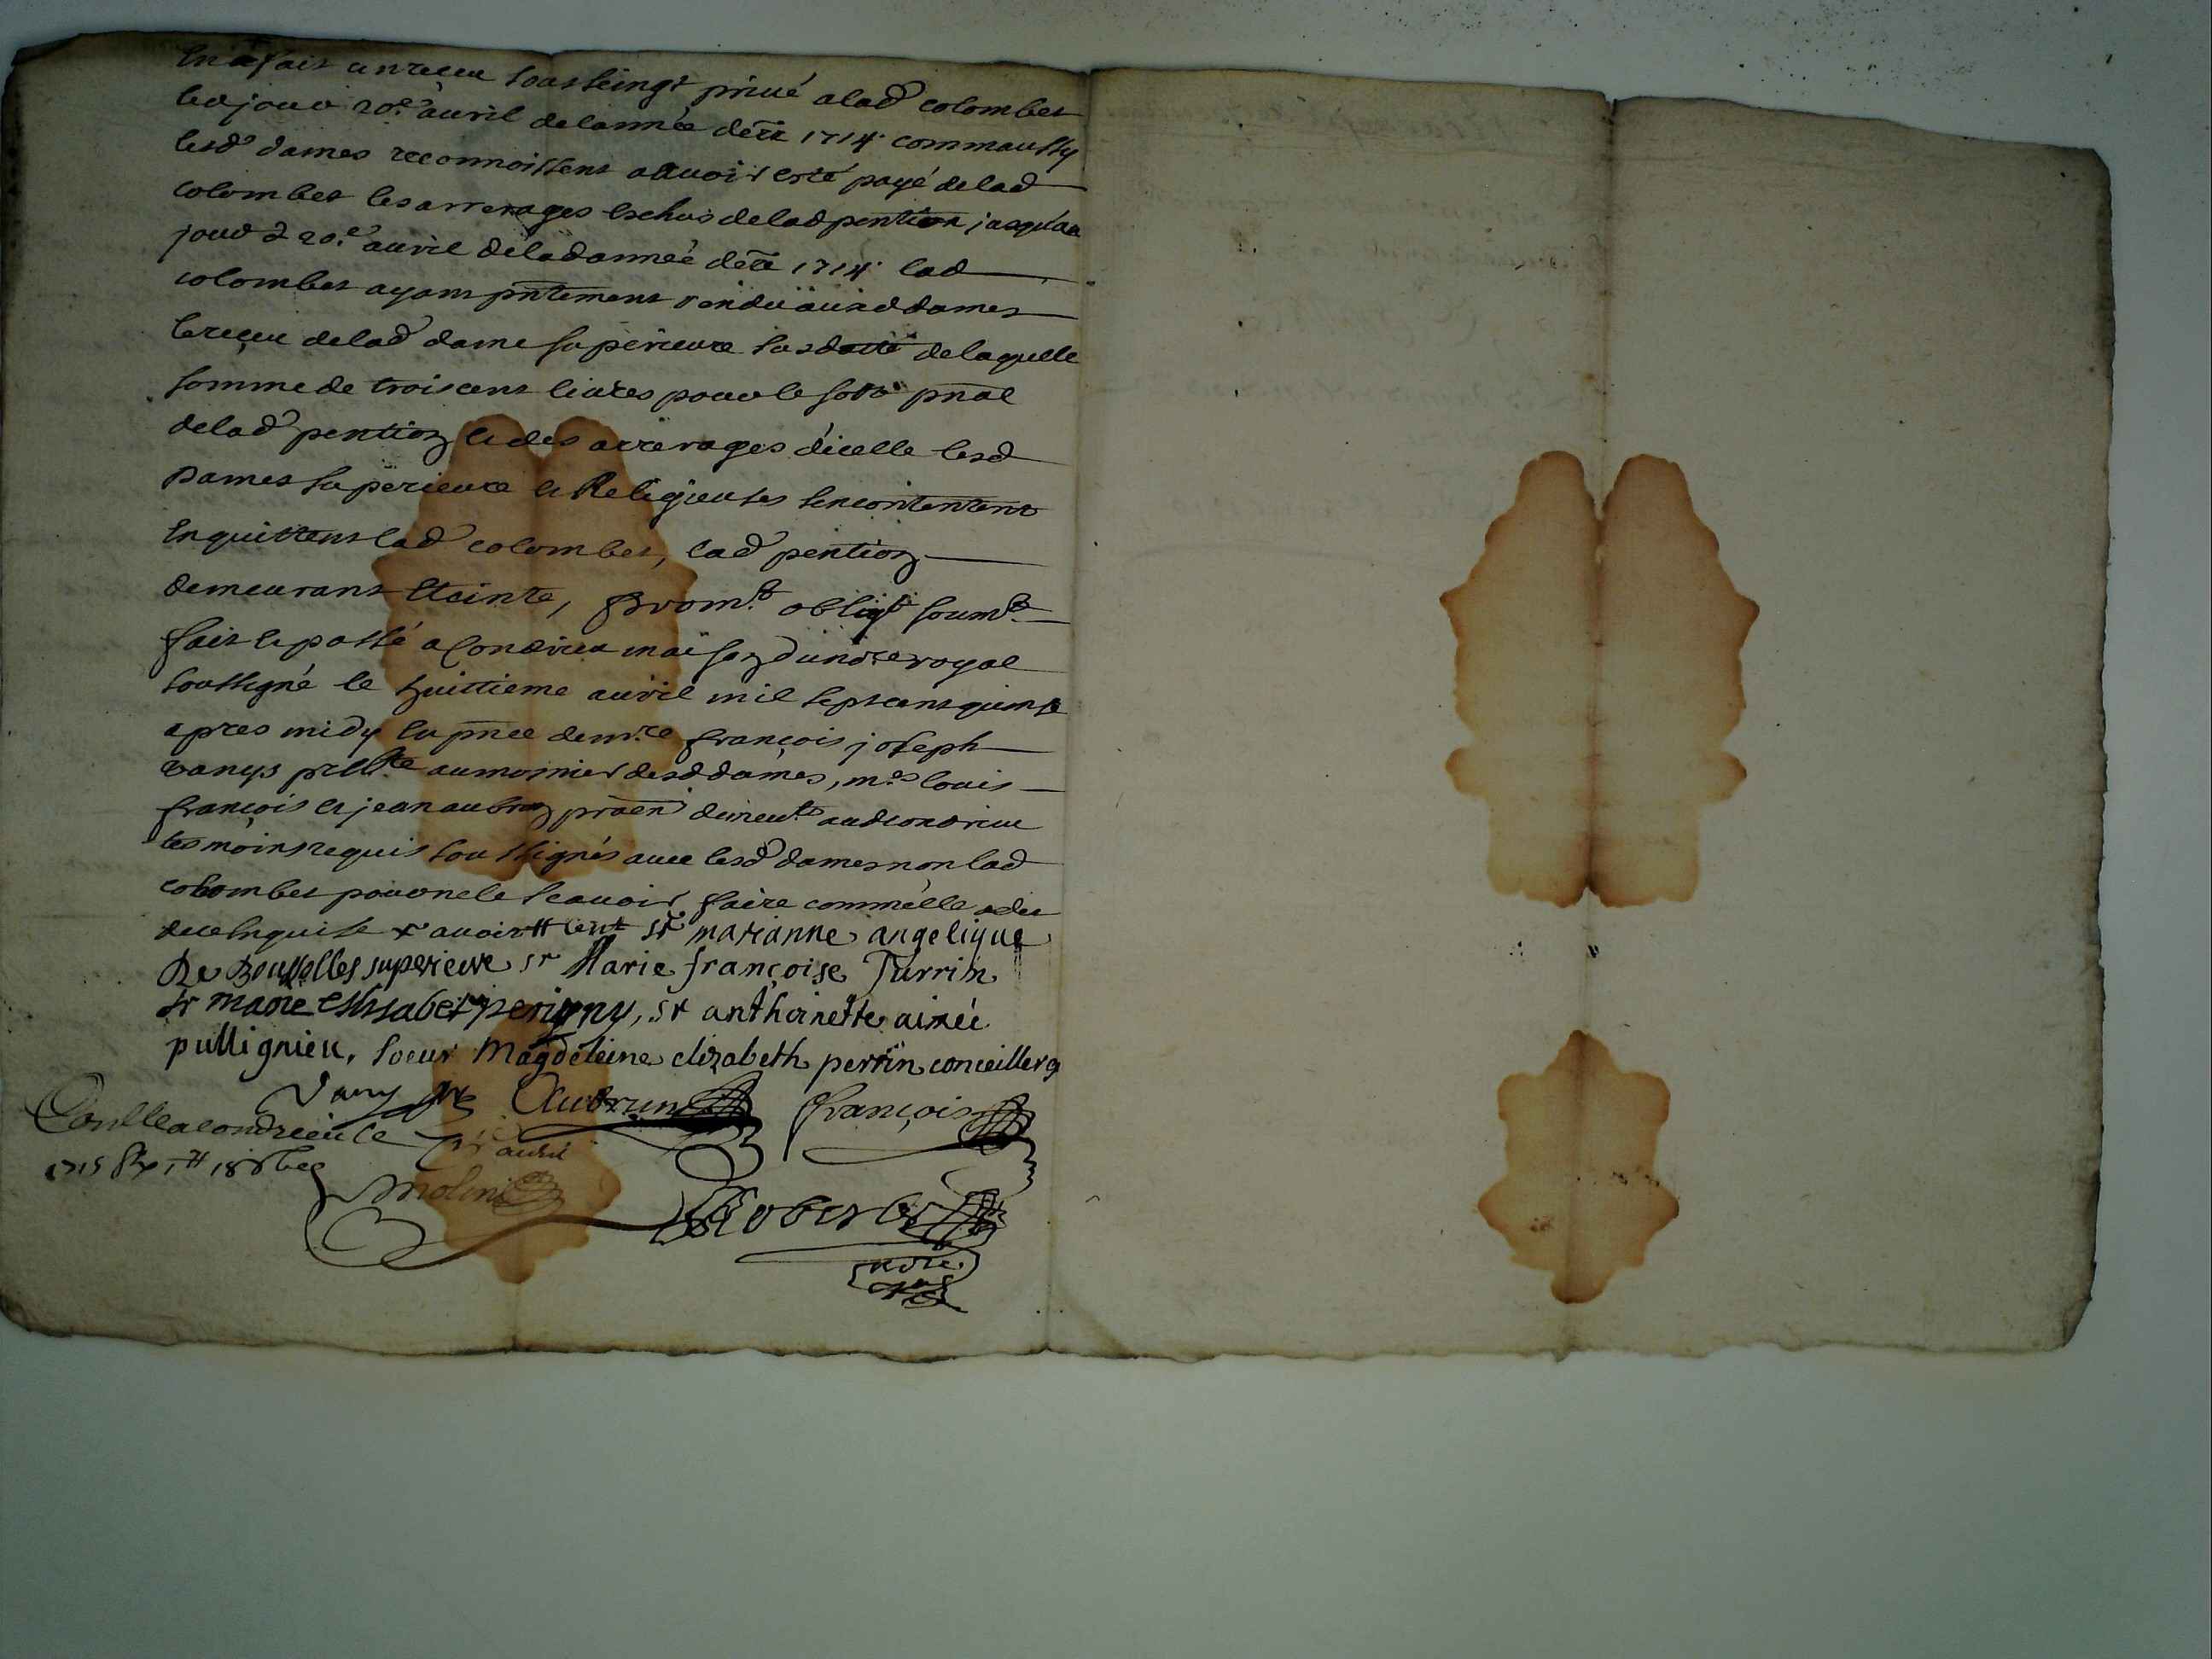 En a fait un reçeu sous seingt privé a lad colombet
led jour 20e avril de lannée dere 1714 comme aussy
lesd dames reconnoissent avoir esté payé de lad
colombet les arrerages eschus de lad pention jusqu'au
jour d 20e avril de lad année dere 1714 lad
colombet ayant pntement rendu auxd dames
le reçeu de lad dame superieure susdatté de laquelle
somme de trois cent livres pour le sort pnal
de lad pention et des arrerages d'icelle lesd
Dames superieure et Religieuses se contentent
En quittent lad colombet, lad pention
demeurant Eteinte, promt oblig soumt
fait et passé a Condrieu maison du nore royal
soussigné le huittieme avril mil sept cent quinze
apres midy En pnce de mre françois joseph
vanys prestre aumonier desd dames, mrs louis
françois et jean aubrun praen demeurts aud condrieu
tesmoins requis soussignés avec lesd dames non lad
colombet pour ne le scavoir faire comme elle a dit
de ce Enquise sr marianne angelique
De Boussolles superieure sr Marie françoise Turrin
sr marie Elisabet perigny, sr anthoinette aimée
pullignieu, soeur Magdeleine elizabeth perrin conceillere
Vany pre Aubrun françois
Conlle a condrieu le avril
1715 Rx
Molin
Robert
nore